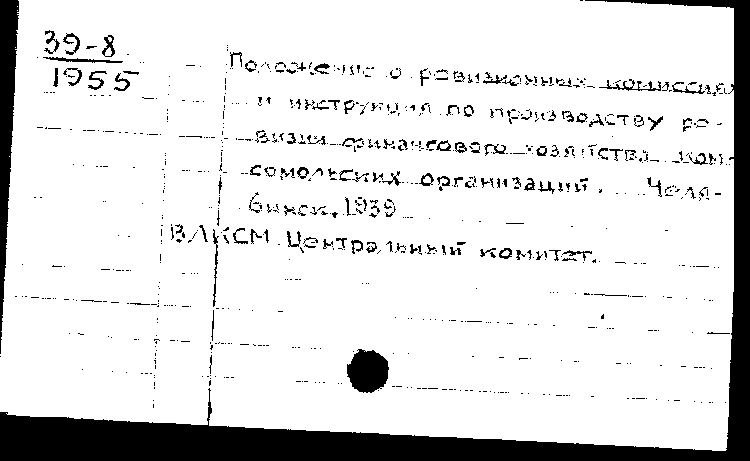 39-8
1955
Положение о ревизионных комиссиях
и инструкция по производству ре-
визии финансового хозяйства ком-
сомольских организаций. Челя-
бинск, 1939
ВЛКСМ. Центральный комитет.